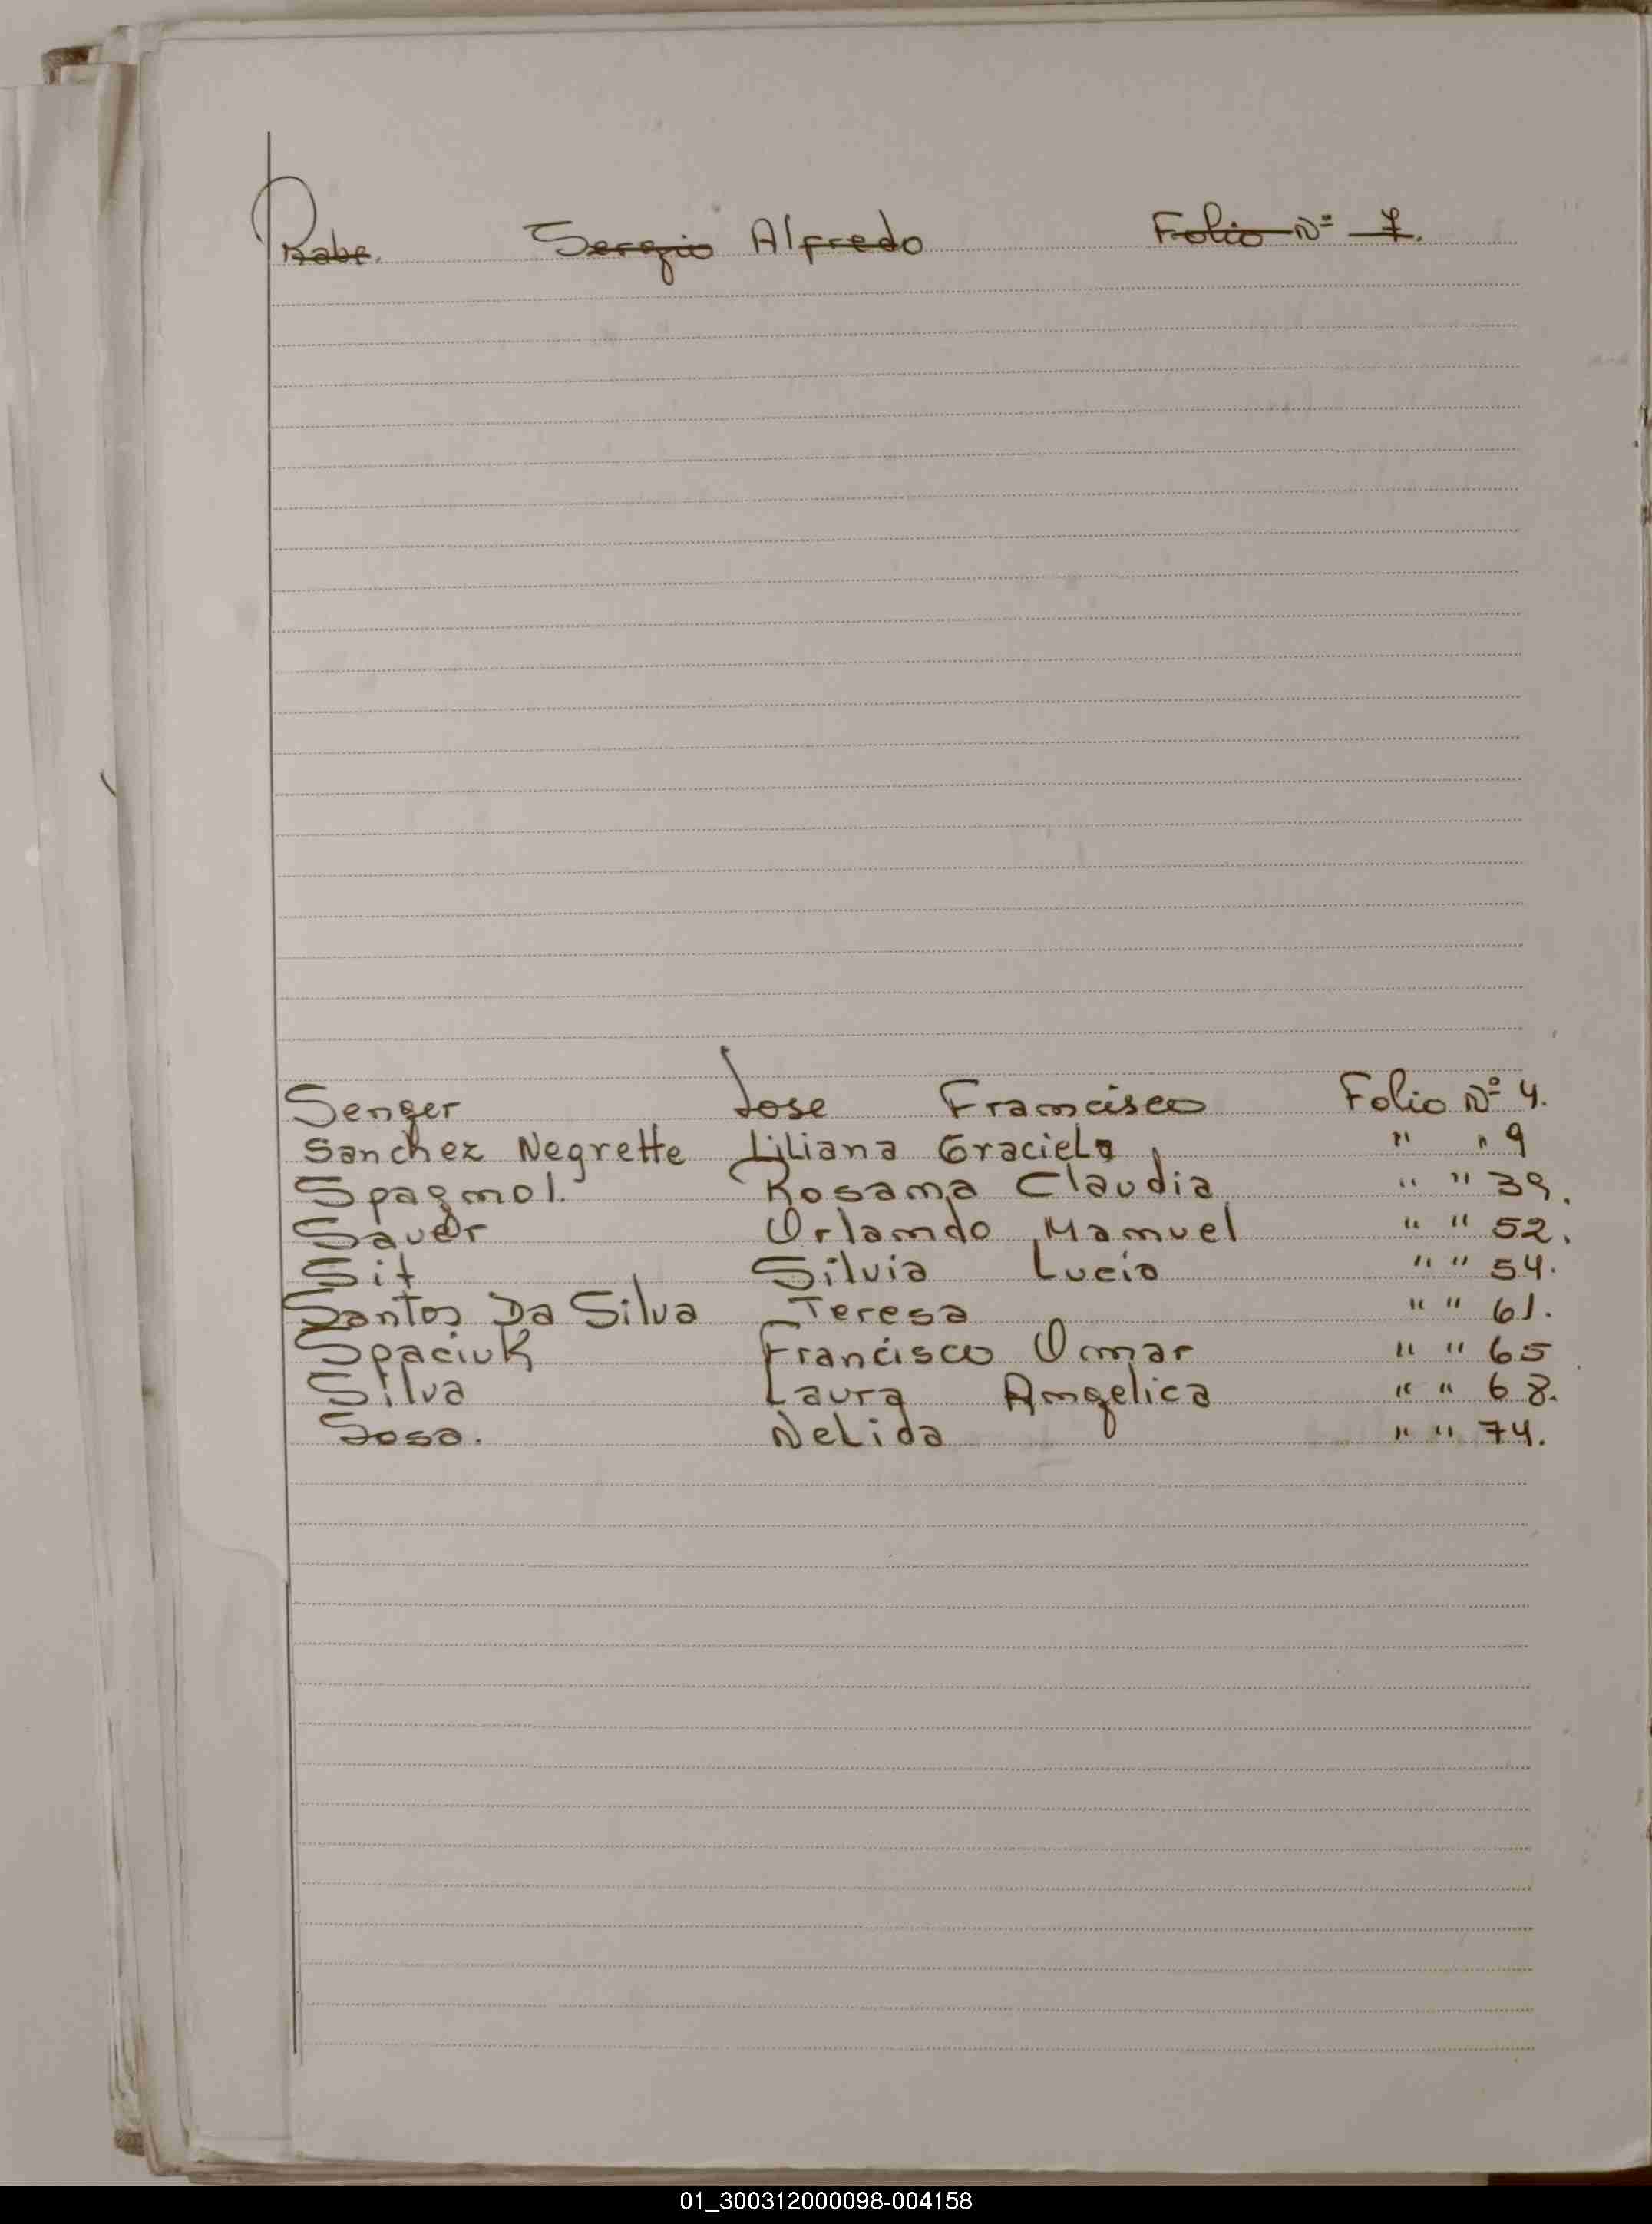 Rabe. Sergio Alfredo Folio Nº 7.
Senger Jose Francisco Folio Nº 4.
Sanchez Negrette Liliana Graciela " " 9
Spagnol. Rosana Claudia " " 39.
Sauer Orlando Manuel " " 52.
Sit Silvia Lucia " " 54.
Santos Da Silva Teresa " " 61.
Spaciuk Francisco Omar " " 65
Silva Laura Angelica " " 68.
Sosa. Nelida " " 74.
01_300312000098-004158